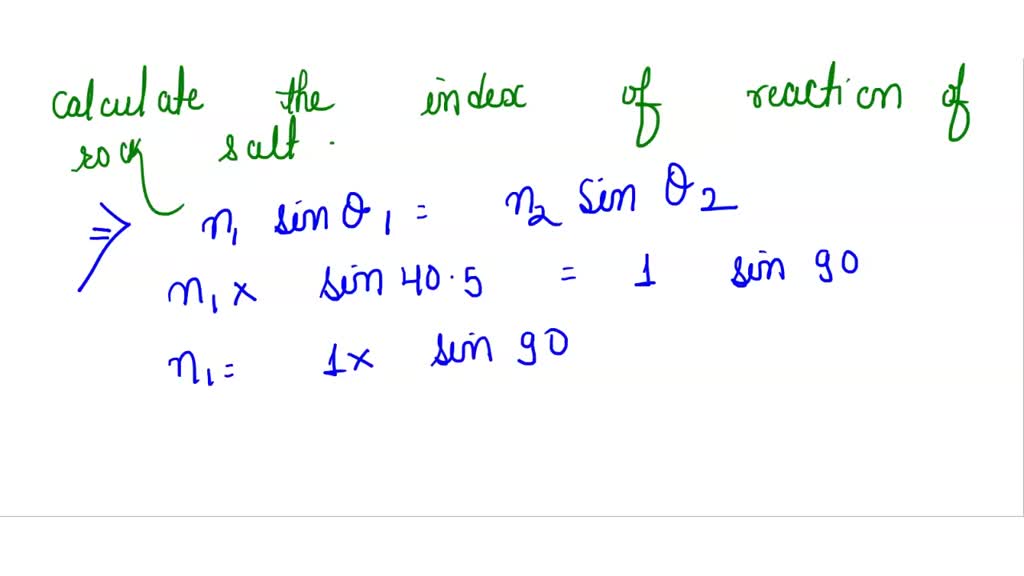 calculate the index of reaction of
rock salt.
⇒ n₁ sin θ₁ = n₂ sin θ₂
n₁ × sin 40.5 = 1 sin 90
n₁ = 1 × sin 90